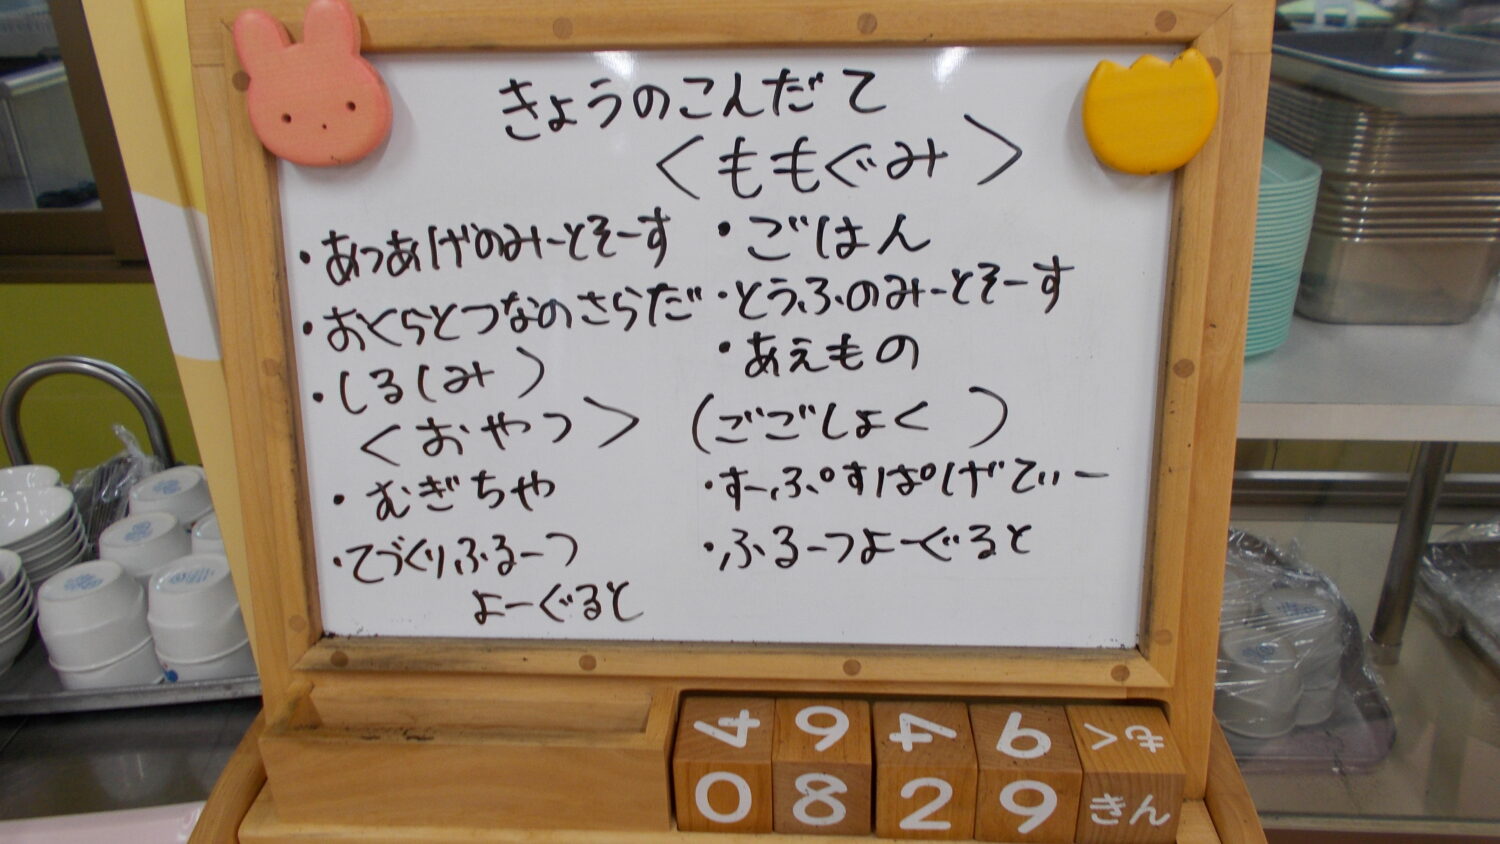 きょうのこんだて
<ももぐみ>
・あつあげのみーとそーす
・おくらとつなのさらだ
・しるしみ)
<おやつ>
・むぎちゃ
・てづくりふるーつ
よーぐると
・ごはん
・とうふのみーとそーす
・あえもの
(ごごしょく )
・すーぷすぱげてぃー
・ふるーつよーぐると
4 6 4 9 もく
0 8 2 9 きん